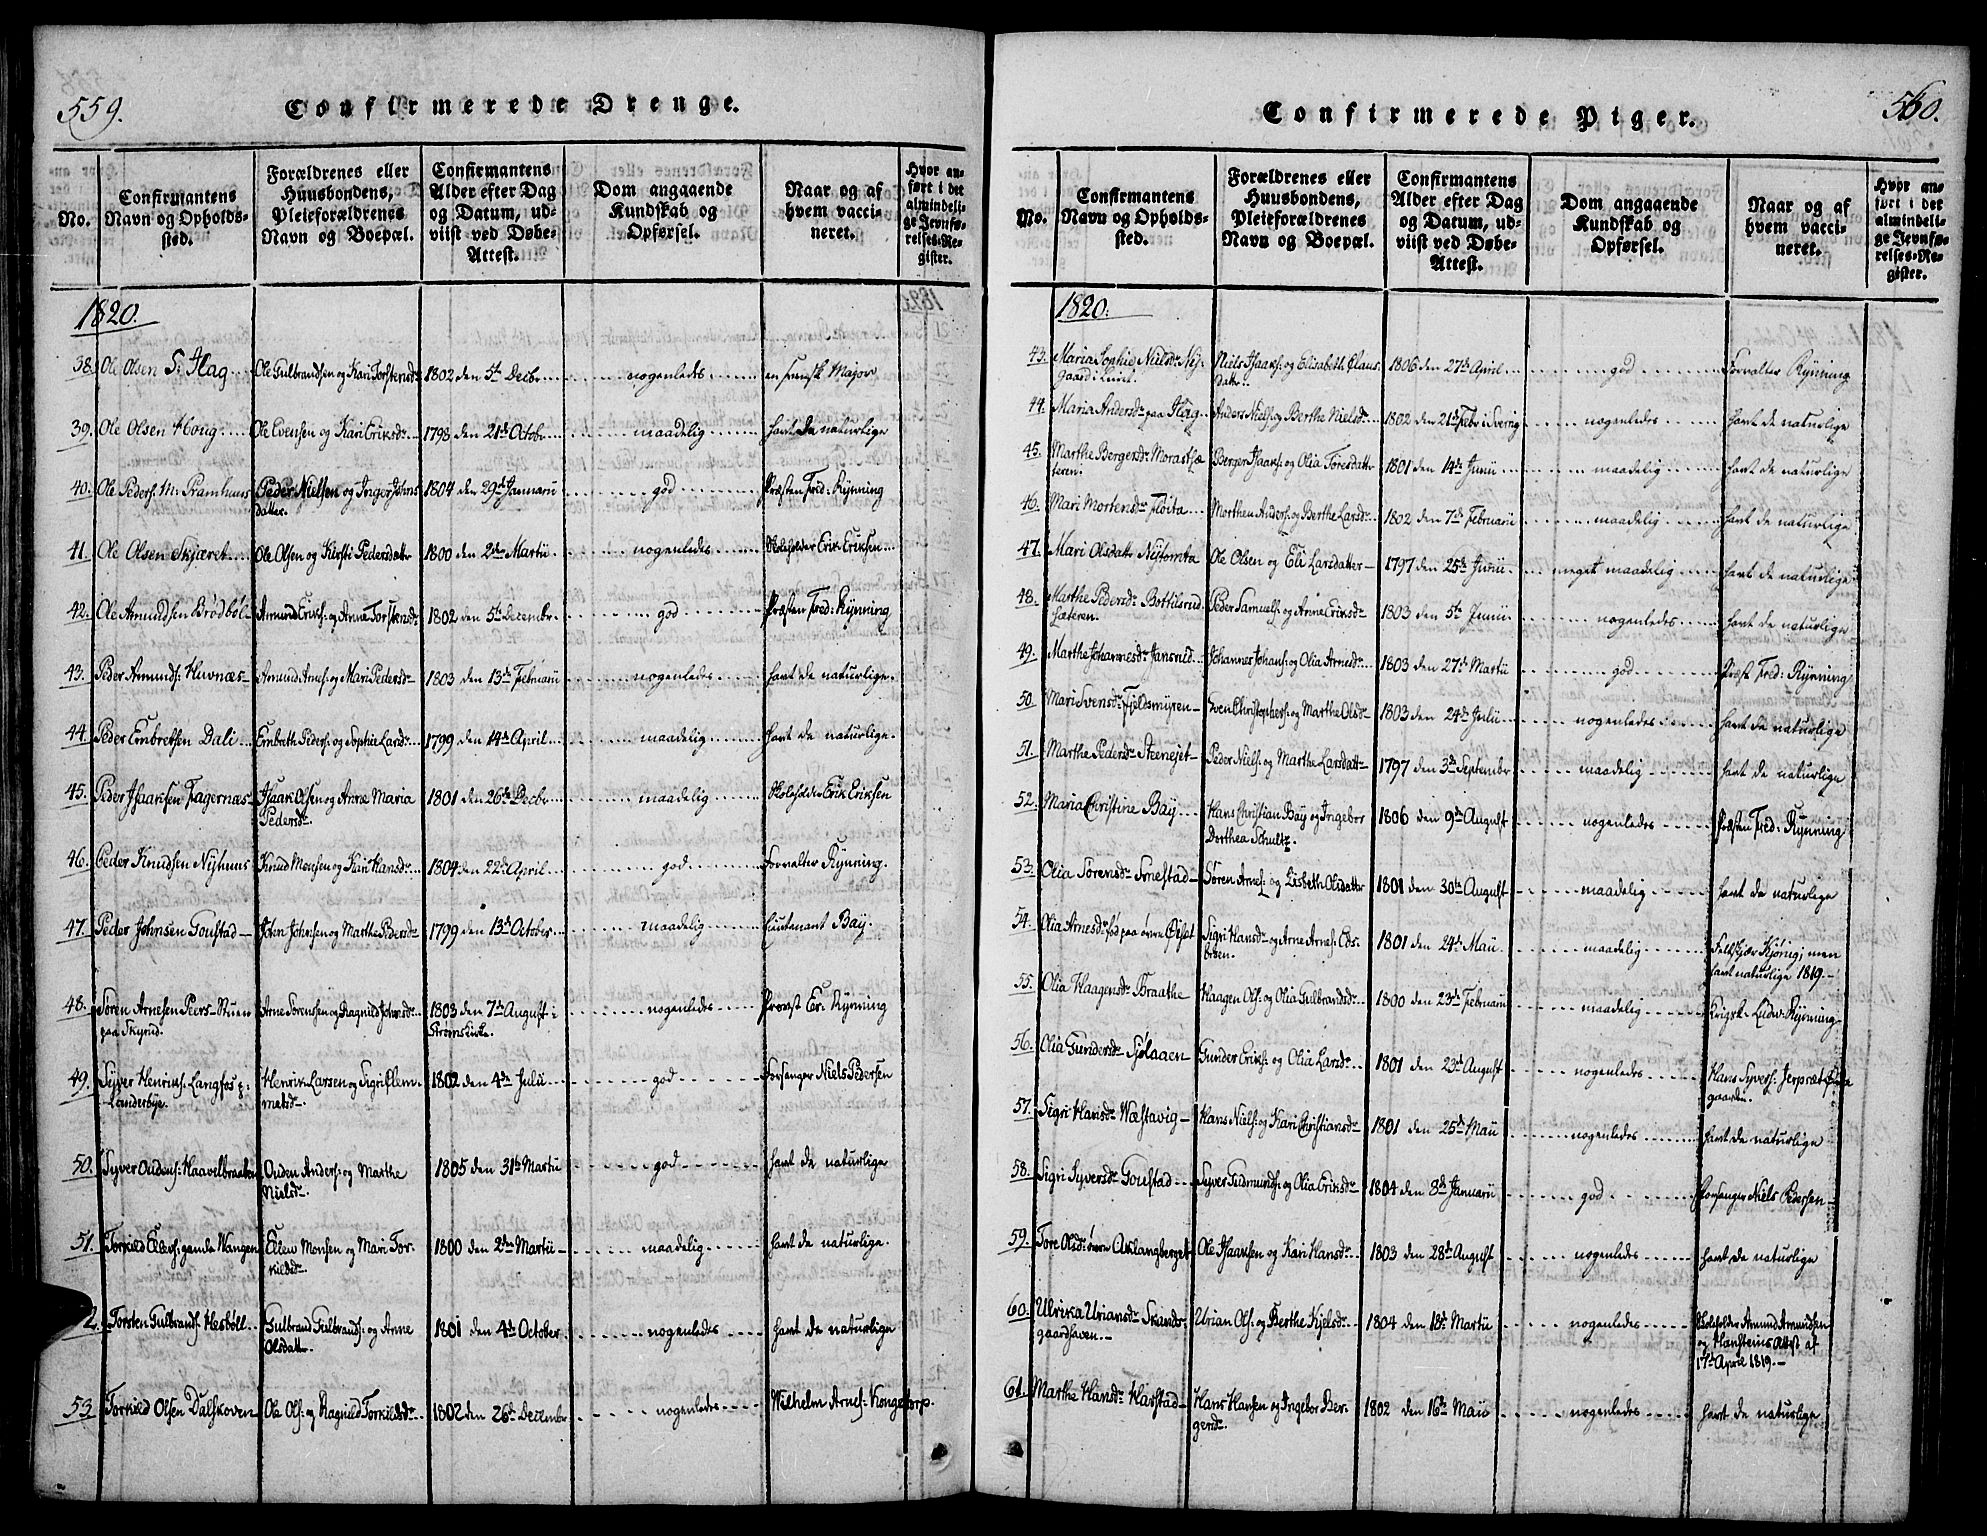 559.
Confirmerede Drenge.
No.
Confirmantens Navn og Opholdssted.
Forældrenes eller Huusbondens, Pleieforældrenes Navn og Boepæl.
Confirmantens Alder efter Dag og Datum, udviist ved Døbe-Attest.
Dom angaaende Kundskab og Opførsel.
Naar og af hvem vaccineret.
Hvor anført i det almindelige Jevnførelses-Register.
1820.
38. Ole Olsen S: Flag Ole Gulbrandsen og Kari Torstensdr 1802 den 5te Decbr nogenledes en svensk Major
39. Ole Olsen Houg Ole Evensen og Kari Eriksdr 1798 den 21de Octobr maadelig havt de naturlige
40. Ole Peders: M: Pramhuus Peder Nielsen og Inger Johns 1804 den 29de Januarii god Præsten Fred: Rynning
datter.
41. Ole Olsen Skjæret Ole Olsen og Kirsti Pedersdattr 1800 den 2den Martii nogenledes Skoleholder Erik Eriksen
42. Ole Amundsen Brødbøl Amund Eriks: og Anne Torstensdr 1802 den 5te Decembr god Præsten Fred: Rynning
43. Peder Amunds: Huvnæs Amund Arnes: og Mari Pedersdr 1803 den 13de Februarii nogenledes havt de naturlige
44. Peder Embretsen Dali Embreth Peders: og Sophie Larsdr 1799 den 14de April maadelig havt de naturlige
45. Peder Isaaksen Fagernæs Isaak Olsen og Anne Maria 1801 den 26de Decbr maadelig Skoleholder Erik Eriksen
Pedersdr.
46. Peder Knudsen Nyhuus Knud Monsen og Kari Hansdr 1804 den 22de April god Forvalter Rynning.
47. Peder Johnsen Goustad John Johnsen og Marthe Pedersdr 1799 den 13de October maadelig Lieutenant Bay.
48. Søren Arnesen Peers-Stuen Arne Sørensen og Ragnild Johnsdr 1803 den 7de August i nogenledes Provst Er. Rynning
paa Skynd. Strømskirke.
49. Syver Henriks: Langfos Henrik Larsen og Sigri Flem- 1802 den 4de Julii god Forsanger Niels Pedersen
Landerbye. metsdr.
50. Syver Oudens: Haavelbraaten Ouden Anders: og Marthe 1805 den 31te Martii god havt de naturlige
Nielsdr.
51. Torkild Ellevs: gamle Wangen Ellew Monsen og Mari Tor- 1800 den 2den Martii maadelig havt de naturlige.
kildsdr
2. Torsten Gulbrands: Hesbøll Gulbrand Gulbrands: og Anne 1801 den 4de October nogenledes havt de naturlige
Olsdattr
53 Torkild Olsen Dalskoven Ole Ols: og Ragnild Torkildsdr 1802 den 26de Decembr nogenledes Wilhelm Arnes: Kongetorp.
560.
Confirmerede Piger.
No.
Confirmantens Navn og Opholdssted.
Forældrenes eller Huusbondens, Pleieforældrenes Navn og Boepæl.
Confirmantens Alder efter Dag og Datum, udviist ved Døbe-Attest.
Dom angaaende Kundskab og Opførsel.
Naar og af hvem vaccineret.
Hvor anført i det almindelige Jevnførelses-Register.
1820.
43. Maria Sophie Nielsdr Ny- Niels Isaaks: og Elisabeth Claus 1806 den 27de April god Forvalter Rynning
gaard datter.
44. Maria Andersdr paa Flag Anders Niels: og Berthe Nielsdr 1802 den 21de Febr i Sverig nogenledes havt de naturlige
45. Marthe Bergersdr Morastsæ Berger Isaaks: og Olia Toresdattr 1801 den 14de Junii maadelig havt de naturlige
teren.
46. Mari Mortensdr Fløita Morthen Anders: og Berthe Larsdr 1802 den 7de Februarii maadelig havt de naturlige
47. Mari Olsdattr Nytomta Ole Olsen og Eli Larsdatter 1797 den 25de Junii meget maadelig havt de naturlige
48. Marthe Pedersdr Bottilsrud Peder Samuels: og Anne Eriksdr 1803 den 5te Junii nogenledes havt de naturlige
sæteren.
49. Marthe Johannesdr Jansrud Johannes Johans: og Olia Arnesdr 1803 den 27de Martii god Præst Fred: Rynning
50. Mari Svensdr Fjeldsmyren Sven Christophers: og Marthe Olsdr 1803 den 24de Julii nogenledes havt de naturlige
51. Marthe Pedersdr Steenejet Peder Niels: og Marthe Larsdattr 1797 den 3de Septembr maadelig havt de naturlige
52. Maria Christine Bay Hans Christian Bay og Ingebor 1806 den 9de August nogenledes Præsten Fred: Rynning
Dorthea Schultz.
53. Olia Sørensdr Arnestad Søren Arnes: og Lisbeth Olsdattr 1801 den 30te August maadelig havt de naturlige
54. Olia Arnesdr fød paa øvre Øiset Sigri Hansdr og Arne Arnes: Ods- 1801 den 24de Maii maadelig Feltskjær Kjönig; men
broen. havt naturlige 1819.
55. Olia Haagensdr Braathe Haagen Ols: og Olia Gulbrandsdr 1800 den 23de Februarii maadelig Krigsk. Ludv. Rynning
56. Olia Gundersdr Sjølaaen Gunder Eriks: og Olia Larsdr 1801 den 23de August nogenledes Hans Syvers:
gaarden.
57. Sigri Hansdr Næstavig Hans Niels: og Kari Christiansdr 1801 den 25de Maii nogenledes havt de naturlige
58. Sigri Syversdr Goustad Syver Gudmunds: og Olia Eriksdr 1804 den 8de Januarii god Forsanger Niels Pedersen
59. Tore Olsdr øvre Aklangberget Ole Isaaksen og Kari Hansdr 1803 den 28de August nogenledes havt de naturlige
60. Ulrika Uriansdr Skands- Urian Ols: og Berthe Kjelsdr 1804 den 18de Martii nogenledes Skoleholder Amund Amundsen
gaardhaven. og Hansteins Attest af
17de April 1819.
61. Marthe Hansdr Harstad Hans Hansen og Ingebor Ber- 1802 den 16de Maii nogenledes havt de naturlige
gersdr.